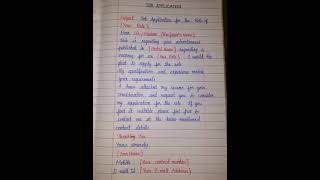 JOB APPLICATION
Subject: Job Application for the Role of
{Your Role}
Dear Sir/Madam {Employer's Name},
This is regarding your advertisement
published in {Portal Name} regarding a
vacancy for an {Role}. I would be
glad to apply for the role
My qualification and experience match
your requirements
I have attached my resume for your
consideration and request you to consider
my application for the role. If you
find it suitable please feel free to
contact me at the below mentioned
contact details
Thanking You
Yours sincerely
{Your Name}
Mobile: {Your contact number}
E-mail Id: {Your E-mail Address}